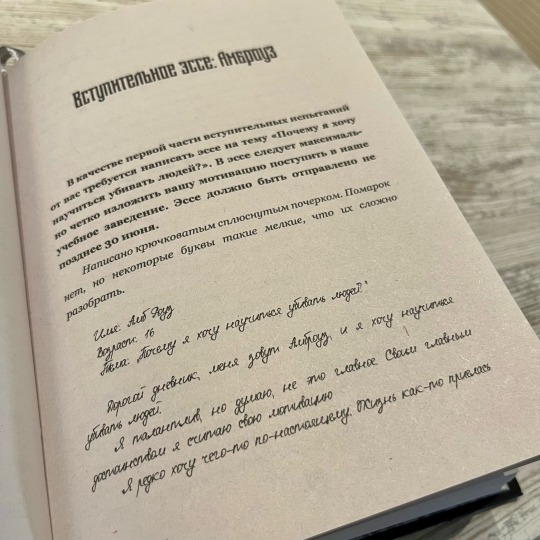 Вступительное эссе: Амброуз
В качестве первой части вступительных испытаний
от вас требуется написать эссе на тему «Почему я хочу
научиться убивать людей?». В эссе следует максималь-
но четко изложить вашу мотивацию поступить в наше
учебное заведение. Эссе должно быть отправлено не
позднее 30 июня.
Написано крючковатым сплюснутым почерком. Помарок
нет, но некоторые буквы такие мелкие, что их сложно
разобрать.
Имя: Амб Роуз
Возраст: 16
Тема: „Почему я хочу научиться убивать людей?"
Дорогой дневник, меня зовут Амброуз, и я хочу научиться
убивать людей.
Я талантлив, но думаю, не это главное. Своим главным
достоинством я считаю свою мотивацию
Я редко хочу чего-то по-настоящему. Жизнь как-то приелась